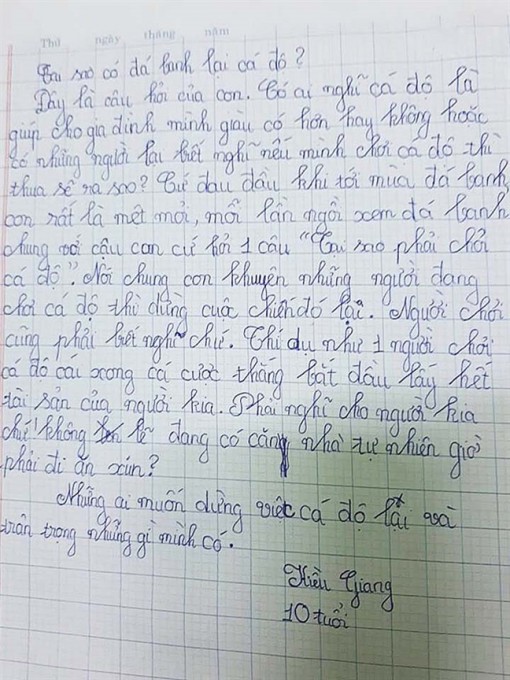 Thứ ngày tháng năm
Tại sao có đá banh lại cá độ?
Đây là câu hỏi của con. Có ai nghĩ cá độ là
giúp cho gia đình mình giàu có hơn hay không hoặc
có những người lại biết nghĩ nếu mình chơi cá độ thì
thua sẽ ra sao? Cứ đau đầu khi tới mùa đá banh,
con rất là mệt mỏi, mỗi lần ngồi xem đá banh
chung với cậu con cứ hỏi 1 câu "Tại sao phải chơi
cá độ". Nói chung con khuyên những người đang
chơi cá độ thì dừng cuộc chiến đó lại. Người chơi
cũng phải biết nghĩ chứ. Thí dụ như 1 người chơi
cá độ cái xong cá cược thắng bắt đầu lấy hết
tài sản của người kia. Phải nghĩ cho người kia
chứ! không lẽ đang có căn nhà tự nhiên giờ
phải đi ăn xin?
Những ai muốn dừng việc cá độ lại và
trân trọng những gì mình có.
Kiều Giang
10 tuổi